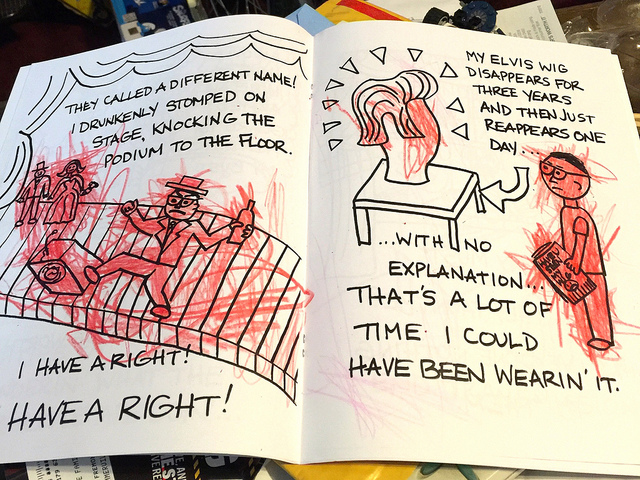 THEY CALLED A DIFFERENT NAME!
I DRUNKENLY STOMPED ON
STAGE, KNOCKING THE
PODIUM TO THE FLOOR.
I HAVE A RIGHT!
HAVE A RIGHT!
MY ELVIS WIG
DISAPPEARS FOR
THREE YEARS
AND THEN JUST
REAPPEARS ONE
DAY...
...WITH NO
EXPLANATION...
THAT'S A LOT OF
TIME I COULD
HAVE BEEN WEARIN' IT.